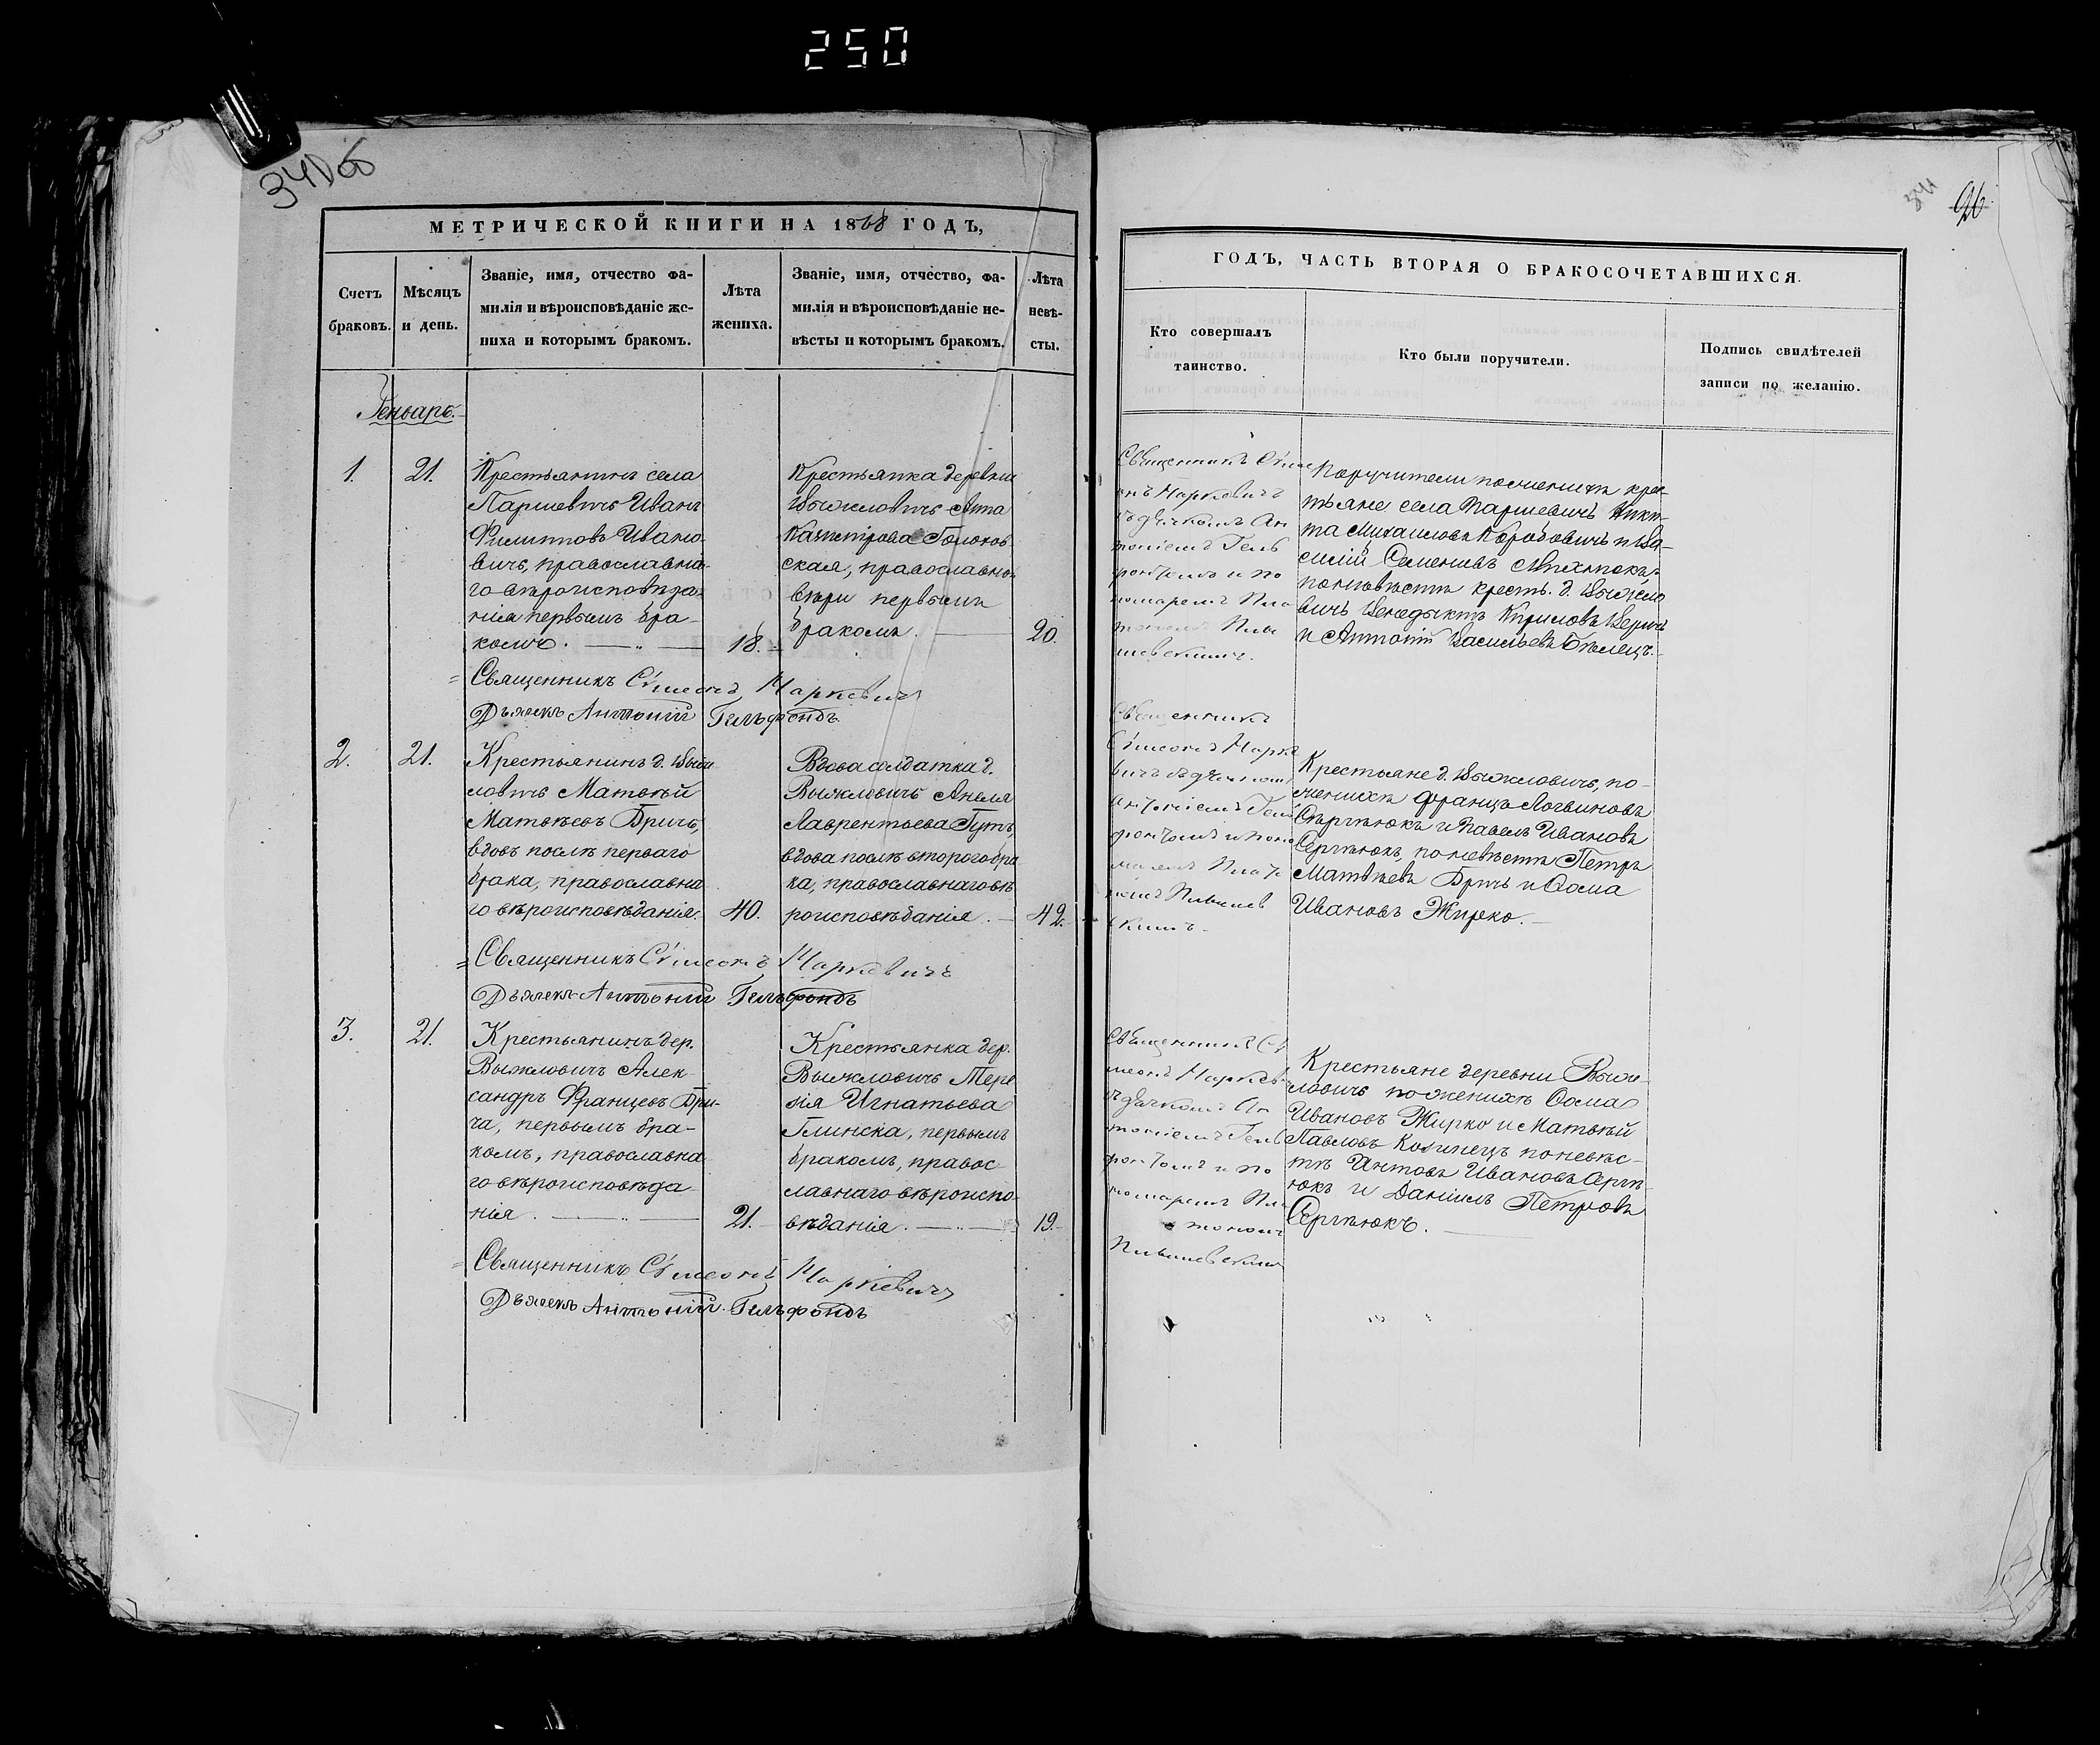 250
340об
МЕТРИЧЕСКОЙ КНИГИ НА 1868 ГОДЪ,
Счетъ браковъ.
Мѣсяцъ и день.
Званіе, имя, отчество фа-
милія и вѣроисповѣданіе же-
ниха и которымъ бракомъ.
Лѣта
жениха.
Званіе, имя, отчество, фа-
милія и вѣроисповѣданіе не-
вѣсты и которымъ бракомъ.
Лѣта
невѣ-
сты.
Генварь.
1.
21.
Крестьянинъ села
Паршевичъ Иванъ
Филипповъ Ивано
вичъ, православна-
го вѣроисповѣда-
нія первымъ бра-
комъ.
18.
Крестьянка деревни
Выжловичъ Анна
православно
вѣры первымъ
бракомъ.
20.
Священникъ Сѵмеонъ Маркевичъ
Дьячекъ Антоній Гельфондъ
2.
21.
Крестьянинъ д. Выж
ловичъ Матвѣй
Матвѣевъ Бричъ,
вдовъ послѣ перваго
брака, православна
го вѣроисповѣданія.
40.
Вдова солдатка д.
Выжловичъ Анеля
Лаврентьева Гутъ,
вдова послѣ второго бра
ка, православнаго вѣ
роисповѣданія.
42.
Священникъ Сѵмеонъ Маркевичъ
Дьячекъ Антоній Гельфондъ
3.
21.
Крестьянинъ дер.
Выжловичъ Алек-
сандръ Францевъ Бри-
ча, первымъ бра-
комъ, православна
го вѣроисповѣда
нія.
21.
Крестьянка дер.
Выжловичъ Тере
зія Игнатьева
Глинска, первымъ
бракомъ, правос-
лавнаго вѣроиспо-
вѣданія.
19.
Священникъ Сѵмеонъ Маркевичъ
Дьячекъ Антоній Гельфондъ
341
96
ГОДЪ, ЧАСТЬ ВТОРАЯ О БРАКОСОЧЕТАВШИХСЯ.
Кто совершалъ
таинство.
Кто были поручители.
Подпись свидѣтелей
записи по желанію.
Священникъ Сѵме
онъ Маркевичъ
съ дьячкомъ Ан
тоніемъ Гель
фондомъ и по
номаремъ Пла
тономъ
Поручители по женихѣ крес-
тьяне села Паршевичъ Ники-
та Михаиловъ и Ва-
силій Семеновъ
по невѣстѣ крест. д. Выжло
вичъ Бенедыктъ Кириловъ
и Антоній Васильевъ
Священникъ
Сѵмеонъ Марке
вичъ съ дьячкомъ
Антоніемъ Гель
фондомъ и поно
маремъ Плато
номъ
Крестьяне д. Выжловичъ, по
женихѣ Францъ Логвиновъ
Сергѣюкъ и Павелъ Ивановъ
Сергѣюкъ, по невѣстѣ Петръ
Матвѣевъ Бричъ и Ѳома
Ивановъ Жирко.
Священникъ Сѵ
меонъ Маркев
съ дьячкомъ Ан
тоніемъ Гель
фондомъ и по
номаремъ Пла
тономъ
Крестьяне деревни Выж-
ловичъ по женихѣ Ѳома
Ивановъ Жирко и Матвѣй
Павловъ Козинецъ по невѣс-
тѣ Антонъ Ивановъ Сергѣ-
юкъ и Даніилъ Петровъ
Сергѣюкъ.